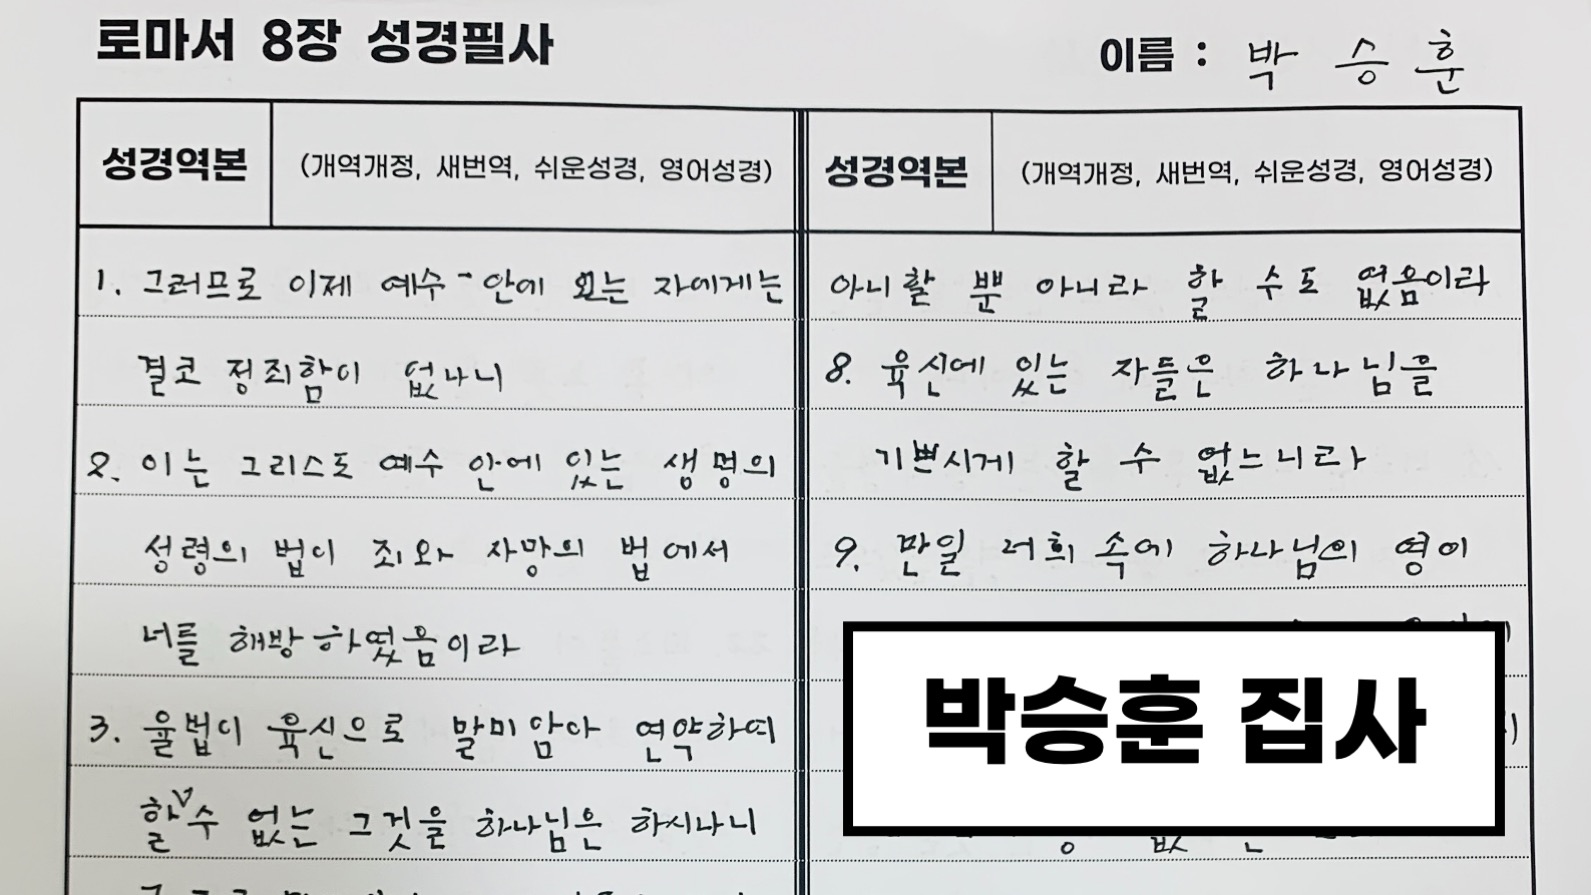 로마서 8장 성경필사
이름 : 박 승 훈
성경역본 (개역개정, 새번역, 쉬운성경, 영어성경)
1. 그러므로 이제 예수 안에 있는 자에게는
결코 정죄함이 없나니
2. 이는 그리스도 예수 안에 있는 생명의
성령의 법이 죄와 사망의 법에서
너를 해방하였음이라
3. 율법이 육신으로 말미암아 연약하여
할 수 없는 그것을 하나님은 하시나니
성경역본 (개역개정, 새번역, 쉬운성경, 영어성경)
아니할 뿐 아니라 할 수도 없음이라
8. 육신에 있는 자들은 하나님을
기쁘시게 할 수 없느니라
9. 만일 너희 속에 하나님의 영이
박승훈 집사